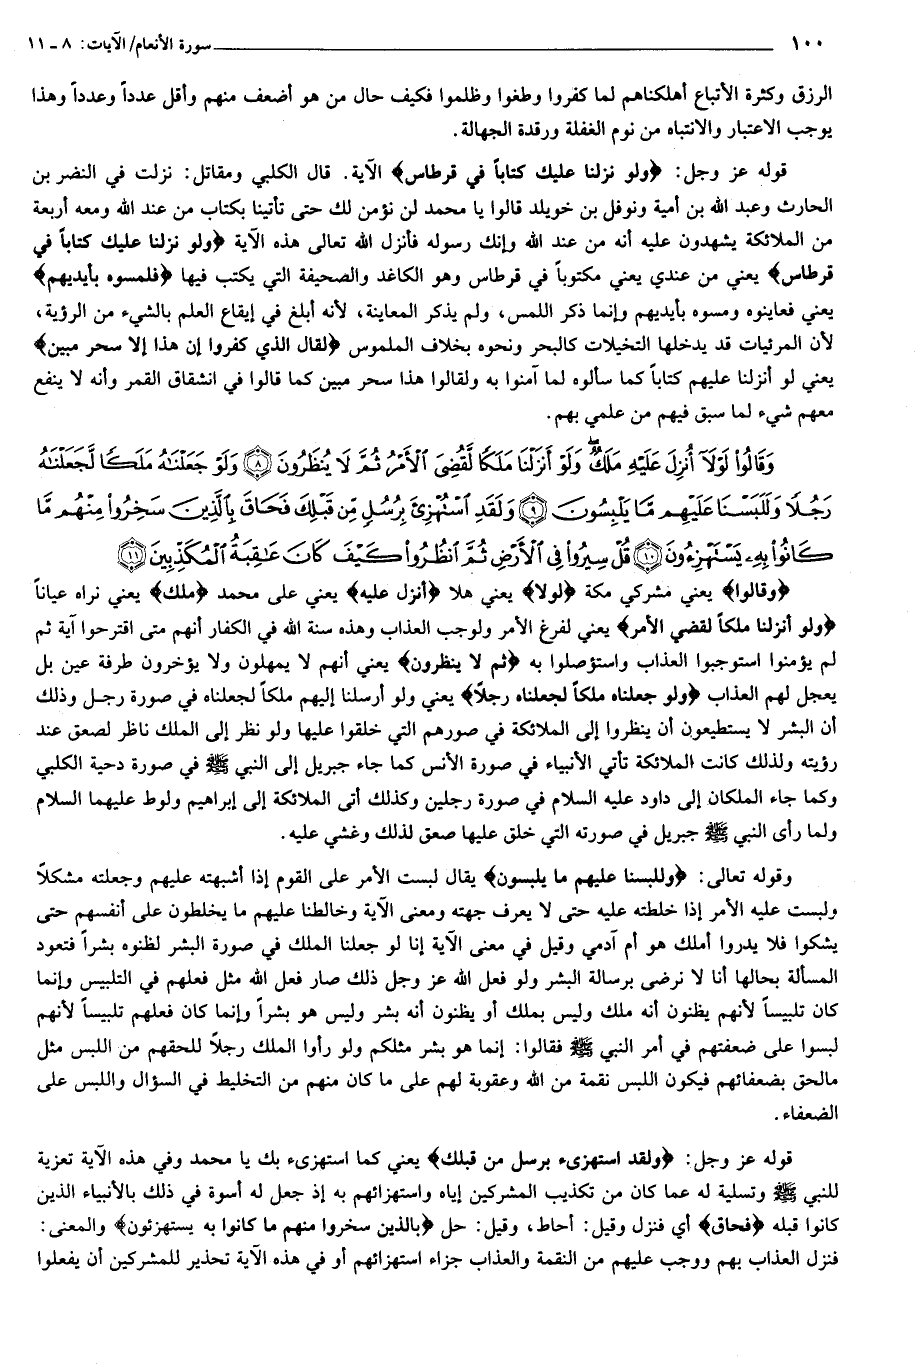 ١٠٠ سورة الأنعام/ الآيات: ٨ - ١١
الرزق وكثرة الأتباع أهلكناهم لما كفروا وطغوا وظلموا فكيف حال من هو أضعف منهم وأقل عدداً وعدداً وهذا
يوجب الاعتبار والانتباه من نوم الغفلة ورقدة الجهالة.
قوله عز وجل: ﴿ولو نزلنا عليك كتاباً في قرطاس﴾ الآية. قال الكلبي ومقاتل: نزلت في النضر بن
الحارث وعبد الله بن أمية ونوفل بن خويلد قالوا يا محمد لن نؤمن لك حتى تأتينا بكتاب من عند الله ومعه أربعة
من الملائكة يشهدون عليه أنه من عند الله وإنك رسوله فأنزل الله تعالى هذه الآية ﴿ولو نزلنا عليك كتاباً في
قرطاس﴾ يعني من عندي يعني مكتوباً في قرطاس وهو الكاغد والصحيفة التي يكتب فيها ﴿فلمسوه بأيديهم﴾
يعني فعاينوه ومسوه بأيديهم وإنما ذكر اللمس، ولم يذكر المعاينة، لأنه أبلغ في إيقاع العلم بالشيء من الرؤية،
لأن المرئيات قد يدخلها التخيلات كالبحر ونحوه بخلاف الملموس ﴿لقال الذي كفروا إن هذا إلا سحر مبين﴾
يعني لو أنزلنا عليهم كتاباً كما سألوه لما آمنوا به ولقالوا هذا سحر مبين كما قالوا في انشقاق القمر وأنه لا ينفع
معهم شيء لما سبق فيهم من علمي بهم.
وَقَالُوا۟ لَوْلَآ أُنزِلَ عَلَيْهِ مَلَكٌ ۖ وَلَوْ أَنزَلْنَا مَلَكًا لَّقُضِىَ ٱلْأَمْرُ ثُمَّ لَا يُنظَرُونَ ﴿٨﴾ وَلَوْ جَعَلْنَٰهُ مَلَكًا لَّجَعَلْنَٰهُ
رَجُلًا وَلَلَبَسْنَا عَلَيْهِم مَّا يَلْبِسُونَ ﴿٩﴾ وَلَقَدِ ٱسْتُهْزِئَ بِرُسُلٍ مِّن قَبْلِكَ فَحَاقَ بِٱلَّذِينَ سَخِرُوا۟ مِنْهُم مَّا
كَانُوا۟ بِهِۦ يَسْتَهْزِءُونَ ﴿١٠﴾ قُلْ سِيرُوا۟ فِى ٱلْأَرْضِ ثُمَّ ٱنظُرُوا۟ كَيْفَ كَانَ عَٰقِبَةُ ٱلْمُكَذِّبِينَ ﴿١١﴾
﴿وقالوا﴾ يعني مشركي مكة ﴿لولا﴾ يعني هلا ﴿أنزل عليه﴾ يعني على محمد ﴿ملك﴾ يعني نراه عياناً
﴿ولو أنزلنا ملكاً لقضي الأمر﴾ يعني لفرغ الأمر ولوجب العذاب وهذه سنة الله في الكفار أنهم متى اقترحوا آية ثم
لم يؤمنوا استوجبوا العذاب واستؤصلوا به ﴿ثم لا ينظرون﴾ يعني أنهم لا يمهلون ولا يؤخرون طرفة عين بل
يعجل لهم العذاب ﴿ولو جعلناه ملكاً لجعلناه رجلاً﴾ يعني ولو أرسلنا إليهم ملكاً لجعلناه في صورة رجل وذلك
أن البشر لا يستطيعون أن ينظروا إلى الملائكة في صورهم التي خلقوا عليها ولو نظر إلى الملك ناظر لصعق عند
رؤيته ولذلك كانت الملائكة تأتي الأنبياء في صورة الأنس كما جاء جبريل إلى النبي ﷺ في صورة دحية الكلبي
وكما جاء الملكان إلى داود عليه السلام في صورة رجلين وكذلك أتى الملائكة إلى إبراهيم ولوط عليهما السلام
ولما رأى النبي ﷺ جبريل في صورته التي خلق عليها صعق لذلك وغشي عليه.
وقوله تعالى: ﴿وللبسنا عليهم ما يلبسون﴾ يقال لبست الأمر على القوم إذا أشبهته عليهم وجعلته مشكلاً
ولبست عليه الأمر إذا خلطته عليه حتى لا يعرف جهته ومعنى الآية وخالطنا عليهم ما يخلطون على أنفسهم حتى
يشكوا فلا يدروا أملك هو أم آدمي وقيل في معنى الآية إنا لو جعلنا الملك في صورة البشر لظنوه بشراً فتعود
المسألة بحالها أنا لا نرضى برسالة البشر ولو فعل الله عز وجل ذلك صار فعل الله مثل فعلهم في التلبيس وإنما
كان تلبيساً لأنهم يظنون أنه ملك وليس بملك أو يظنون أنه بشر وليس هو بشراً وإنما كان فعلهم تلبيساً لأنهم
لبسوا على ضعفتهم في أمر النبي ﷺ فقالوا: إنما هو بشر مثلكم ولو رأوا الملك رجلاً للحقهم من اللبس مثل
مالحق بضعفائهم فيكون اللبس نقمة من الله وعقوبة لهم على ما كان منهم من التخليط في السؤال واللبس على
الضعفاء.
قوله عز وجل: ﴿ولقد استهزىء برسل من قبلك﴾ يعني كما استهزىء بك يا محمد وفي هذه الآية تعزية
للنبي ﷺ وتسلية له عما كان من تكذيب المشركين إياه واستهزائهم به إذ جعل له أسوة في ذلك بالأنبياء الذين
كانوا قبله ﴿فحاق﴾ أي فنزل وقيل: أحاط، وقيل: حل ﴿بالذين سخروا منهم ما كانوا به يستهزئون﴾ والمعنى:
فنزل العذاب بهم ووجب عليهم من النقمة والعذاب جزاء استهزائهم أو في هذه الآية تحذير للمشركين أن يفعلوا